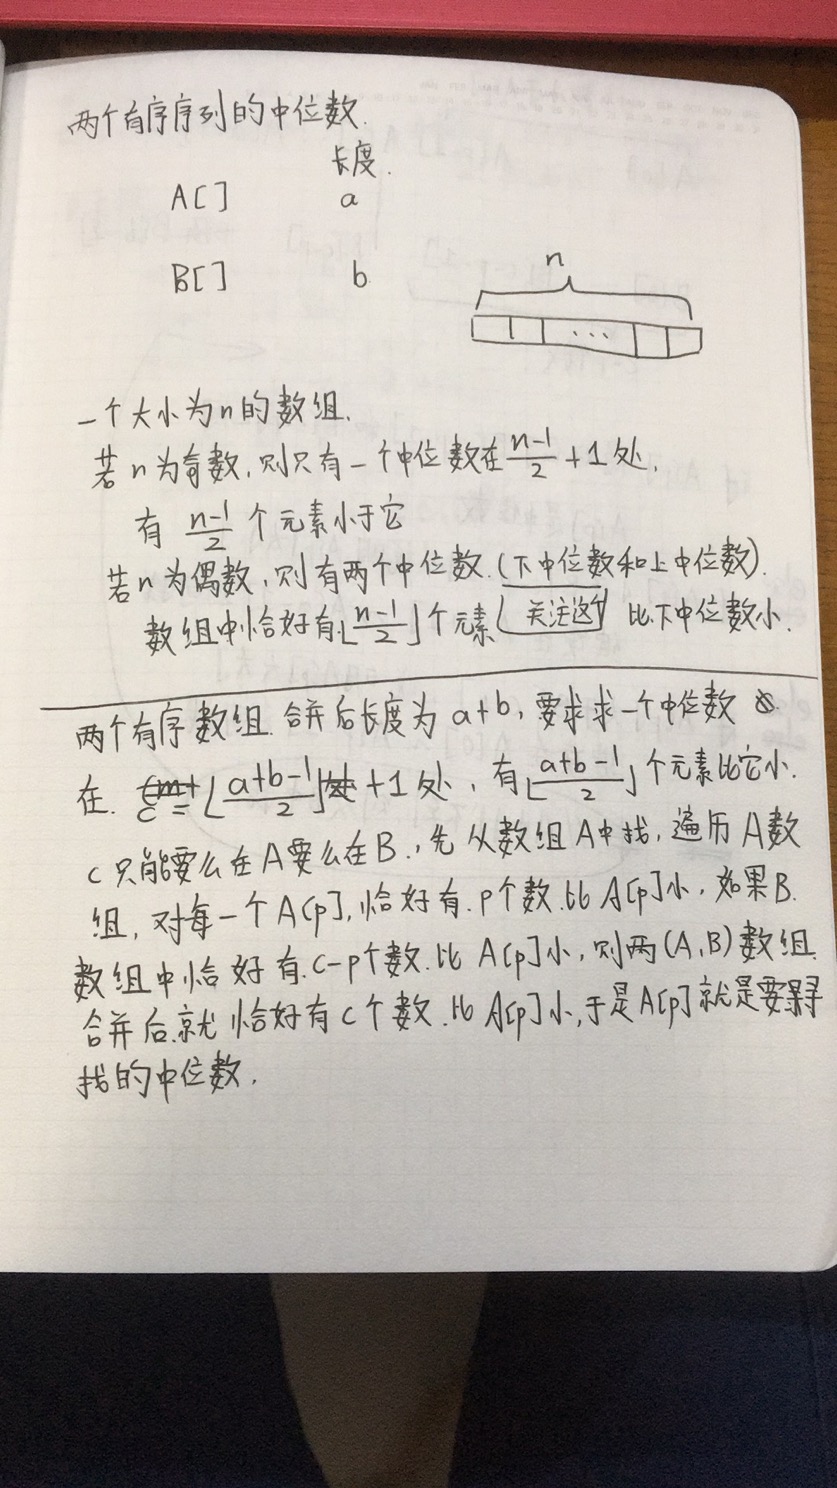 两个有序序列的中位数.
长度.
A[] a
B[] b
n
...
一个大小为n的数组.
若n为奇数,则只有一个中位数在 \frac{n-1}{2}+1处,
有 \frac{n-1}{2} 个元素小于它
若n为偶数,则有两个中位数.(下中位数和上中位数).
数组中恰好有⌊\frac{n-1}{2}⌋个元素 关注这个 比下中位数小.
两个有序数组.合并后长度为a+b,要求求一个中位数
在. c=⌊\frac{a+b-1}{2}⌋+1处,有⌊\frac{a+b-1}{2}⌋个元素比它小.
c只能要么在A要么在B.,先从数组A中找,遍历A数
组,对每一个A[p],恰好有.p个数.比A[p]小,如果B.
数组中恰好有.c-p个数.比A[p]小,则两(A,B)数组.
合并后.就恰好有c个数.比A[p]小,于是A[p]就是要寻
找的中位数.